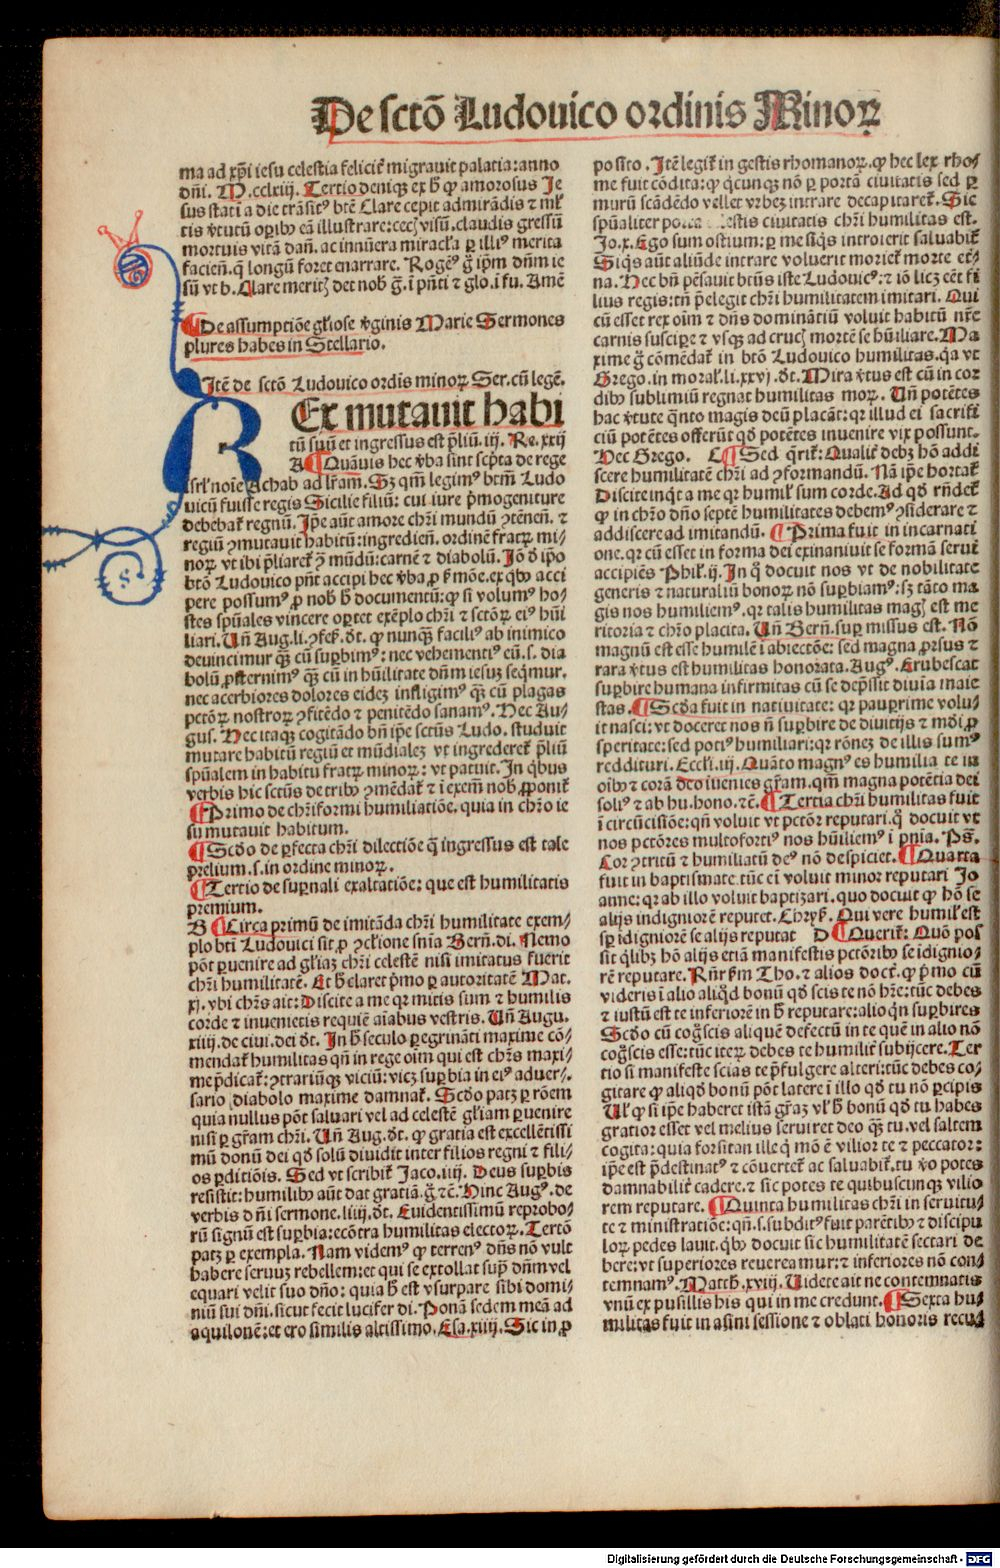 De sctō Ludouico ordinis Minoꝝ
ma ad xp̄i iesu celestia felicit̄ migrauit palatia: anno
dn̄i. M.cclxiij. Tertio deniqꝫ ex h̄ ꝙ amorosus Je
sus statī a die trāsitꝰ btē Clare cepit admirādis ⁊ ml̄
tis v̄tutū oꝑibꝰ eā illustrare: cecꝭ visū. claudis gressū
mortuis vitā dan̄. ac innūera miracl̄a ꝑ illiꝰ merita
facien̄. q̄ longū foret enarrare. Rogēꝰ g̊ ip̄m dn̄m ie
sū vt b. Clare meritꝭ det nob̄ ḡ. ī pn̄ti ⁊ glo. ī fu. Amē
¶ De assumptiōe gl̄iose v̄ginis Marie Sermones
plures habes in Stellario.
Itē de sctō Ludouico ordīs minoꝝ Ser. cū legē.
REx mutauit habi
tū suū et ingressus est p̄liū. iij. Re. xxij
A ¶ Quāuis hec v̄ba sint scp̄ta de rege
isrl̄ noīe Achab ad lr̄am. Sꝫ qm̄ legimꝰ btm̄ Ludo
uicū fuisse regis Sicilie filiū: cui iure p̄mogeniture
debebat̄ regnū. Ip̄e aūt amore chr̄i mundū ꝯtēnen̄. ⁊
regiū ꝯmutauit habitū: ingredien̄. ordinē fratꝝ mi⸗
noꝝ vt ibi p̄liaret̄ ꝯ̄ mūdū: carnē ⁊ diabolū. Jō d̄ ip̄o
btō Ludouico pn̄t accipi hec v̄ba ꝓ ß mōe. ex qͥbꝰ acci
pere possumꝰ ꝓ nob̄ h̄ documentū: ꝙ si volumꝰ ho⸗
stes spūales vincere oꝑtet exēplo chr̄i ⁊ sctōꝝ eiꝰ hūi
liari. Un̄ Aug. li. ꝯfess̄. dt̄. ꝙ nunqꝫ faciliꝰ ab inimico
deuincimur qꝫ cū suꝑbimꝰ: nec vehementiꝰ eū. s. dia
bolū ꝓsternimꝰ qꝫ cū in hūilitate dn̄m iesuꝫ seqͥmur.
nec acerbiores dolores eideꝫ infligimꝰ qꝫ cū plagas
pctōꝝ nostroꝝ ꝯfitēdo ⁊ penitēdo sanamꝰ. Hec Au⸗
gus. Hec itaqꝫ cogitādo bn̄ ip̄e sctūs Ludo. studuit
mutare habitū regiū et mūdialeꝫ vt ingrederet̄ p̄liū
spūalem in habitu fratꝝ minoꝝ: vt patuit. In qͥbus
verbis hic sctūs de tribꝰ ꝯmēdat̄ ⁊ ī exem̄ nob̄ ꝓponit̄
¶ Primo de chr̄iformi humiliatiōe. quia in chr̄o ie
su mutauit habitum.
¶ Scdo de ꝑfecta chr̄i dilectiōe q̄ ingressus est tale
prelium. s. in ordine minoꝝ.
¶ Tertio de suꝑnali exaltatiōe: que est humilitatis
premium.
B ¶ Circa primū de imitāda chr̄i humilitate exem⸗
plo bti Ludouici sit ꝓ ꝯclione sn̄ia Bern̄. di. Nemo
pōt ꝑuenire ad gl̄iaꝫ chr̄i celestē nisi imitatus fuerit
chr̄i humilitatē. Et h̄ claret p̄mo ꝑ autoritatē Mat.
xj. vbi chr̄s ait: Discite a me qꝛ mitis sum ⁊ humilis
corde ⁊ inuenietis requiē aīabus vestris. Un̄ Augu.
xiiij. de ciui. dei dt̄. In h̄ seculo ꝑegrināti maxime cō⸗
mendat̄ humilitas qn̄ in rege oīm qui est chr̄s maxi⸗
me p̄dicat̄: ꝯtrariūqꝫ viciū: vicꝫ suꝑbia in eiꝰ aduer⸗.
sario diabolo maxime damnat̄. Scdo patꝫ ꝑ rōem
quia nullus pōt saluari vel ad celestē gl̄iam ꝑuenire
nisi ꝑ gr̄am chr̄i. Un̄ Aug. dt̄. ꝙ gratia est excellētissi
mū donū dei qd̄ solū diuidit inter filios regni ⁊ fili⸗
os ꝑditiōis. Sed vt scribit̄ Jaco. iiij. Deus suꝑbis
resistit: humilibꝰ aūt dat gratiā. g̊ ⁊c̄. Hinc Augꝰ. de
verbis dn̄i sermone. liiij. dt̄. Euidentissimū reprobo⸗
rū signū est suꝑbia: ecōtra humilitas electoꝝ. Tertō
patꝫ ꝑ exempla. Nam videmꝰ ꝙ terrenꝰ dn̄s nō vult
habere seruuꝫ rebellem: et qui se extollat supͣ dn̄m vel
equari velit suo dn̄o: quia h̄ est vsurpare sibi domi⸗
niū sui dn̄i. sicut fecit lucifer di. Ponā sedem meā ad
aquilonē: et ero similis altissimo. Esa. xiiij. Sic in ꝓ
posito. Itē legit̄ in gestis rhomanoꝝ. ꝙ hec lex rho⸗
me fuit cōdita: ꝙ qͥcunqꝫ nō ꝑ portā ciuitatis sed ꝑ
murū scādēdo vellet vrbeꝫ intrare decapitaret̄. Sic
spūaliter celestis ciuitatis chr̄i humilitas est.
Jo. x. Ego sum ostium: ꝑ me siqͥs introierit saluabit̄
Siqͥs aūt aliūde intrare voluerit moriet̄ morte et̄⸗
na. Hec bn̄ pēsauit btūs iste Ludouicꝰ: ⁊ iō licꝫ eēt fi
lius regis: tn̄ p̄elegit chr̄i humilitatem imitari. Qui
cū esset rex oīm ⁊ dn̄s dominātiū voluit habitū nr̄e
carnis suscipe ⁊ vsqꝫ ad crucꝭ mortē se hūiliare. Ma
xime g̊ cōmēdat̄ in btō Ludouico humilitas. qͣa vt
Grego. in moral̄. li. xxvj. dt̄. Mira v̄tus est cū in cor
dibꝰ sublimiū regnat humilitas moꝝ. Un̄ potētes
hac v̄tute qͣnto magis deū placāt: qꝛ illud ei sacrifi
ciū potētes offerūt qd̄ potētes inuenire vix possunt.
Hec Grego. C ¶ Sed qͥrit̄: Qualit̄ debꝫ hō addi
scere humilitatē chr̄i ad ꝯformandū. Nā ip̄e hortat̄
Discite inqͥt a me qꝛ humil̄ sum corde. Ad qd̄ rn̄det̄
ꝙ in chr̄o dn̄o septē humilitates debemꝰ ꝯsiderare ⁊
addiscere ad imitandū. ¶ Prima fuit in incarnati
one. qꝛ cū esset in forma dei exinaniuit se formā serui
accipiēs Phil̄. ij. In qͦ docuit nos vt de nobilitate
generis ⁊ naturaliū bonoꝝ nō suꝑbiamꝰ: sꝫ tāto ma
gis nos humiliemꝰ. qꝛ talis humilitas magꝭ est me
ritoria ⁊ chr̄o placita. Un̄ Bern̄. suꝑ missus est. Nō
magnū est esse humilē ī abiectōe: sed magna ꝓrsus ⁊
rara v̄tus est humilitas honorata. Augꝰ. Erubescat
suꝑbire humana infirmitas cū se dep̄ssit diuīa maie
stas. ¶ Scd̄a fuit in natiuitate: qꝛ pauꝑrime volu⸗
it nasci: vt doceret nos n̄ suꝑbire de diuitijs ⁊ mūdi ꝓ
speritate: sed potiꝰ humiliari: qꝛ rōneꝫ de illis sumꝰ
reddituri. Eccl̄i. iij. Quāto magnꝰ es humilia te in
oībꝰ ⁊ corā deo īuenies gr̄am. qm̄ magna potētia dei
soliꝰ ⁊ ab hu. hono. ⁊c̄. ¶ Tertia chr̄i humilitas fuit
ī circūcisiōe: qn̄ voluit vt pctōr reputari. qͦ docuit vt
nos pctōres multofortiꝰ nos hūiliemꝰ ī pn̄ia. Ps̄.
Cor ꝯtritū ⁊ humiliatū deꝰ nō despiciet. ¶ Quarta
fuit in baptismate. tūc eī voluit minor reputari Jo
anne: qꝛ ab illo voluit baptizari. quo docuit ꝙ hō se
alijs indigniorē reputet. Chryß. Qui vere humil̄ est
sꝑ īdigniorē se alijs reputat D ¶ Querit̄: Quō pos
sit qͥlibꝫ hō alijs etiā manifestis pctōribꝰ se īdignio⸗
rē reputare. Rn̄r ßm Tho. ⁊ alios doct̄. ꝙ p̄mo cū
videris ī alio aliqͥd bonū qd̄ scis te nō hr̄e: tūc debes
⁊ iustū est te inferiorē in h̄ reputare: alioqͥn suꝑbires
Scdo cū cog̊scis aliquē defectū in te quē in alio nō
cog̊scis esse: tūc iteꝝ debes te humilit̄ subijcere. Ter
tio si manifeste scias te p̄fulgere alteri: tūc debes co⸗
gitare ꝙ aliqd̄ bonū pōt latere ī illo qd̄ tu nō ꝑcipis
Ul̄ ꝙ si ip̄e haberet istā gr̄aꝫ vl̄ h̄ bonū qd̄ tu habes
gratior esset vel melius seruiret deo qꝫ tu. vel saltem
cogita: quia forsitan ille qͥ mō ē vilior te ⁊ peccator:
ip̄e est p̄destinatꝰ ⁊ cōuertet̄ ac saluabit̄. tu v̄o potes
damnabilit̄ cadere. ⁊ sic potes te quibuscunqꝫ vilio
rem reputare. ¶ Quinta humilitas chr̄i in seruitu⸗
te ⁊ ministratiōe: qn̄. s. subditꝰ fuit parētibꝰ ⁊ discipu
loꝝ pedes lauit. qͥbꝰ docuit sic humilitatē sectari de
bere: vt superiores reuereamur: ⁊ inferiores nō con⸗
temnamꝰ. Matth. xviij. Uidete ait ne contemnatis
vnū ex pusillis his qui in me credunt. ¶ Sexta hu⸗
militas fuit in asini sessione ⁊ oblati honoris recu⸗
s
Digitalisierung gefördert durch die Deutsche Forschungsgemeinschaft - DFG